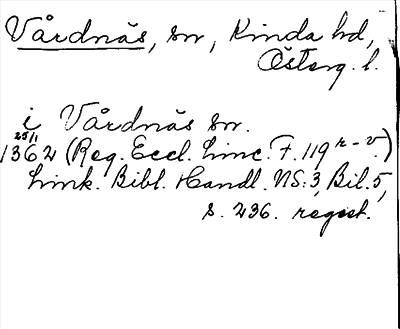 Vårdnäs, sn, Kinda hd,
Österg. l.
i Vårdnäs sn.
25/1
1362 (Reg. Eccl. Linc. F. 119 r-v.)
Link. Bibl. Handl. NS:3, Bil. 5,
s. 236. regest.